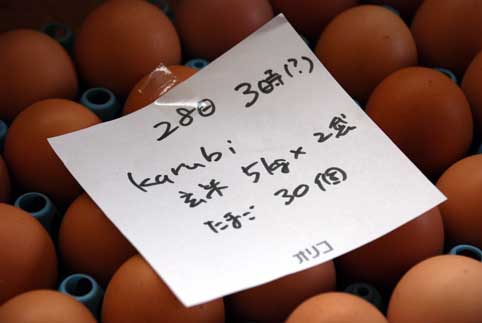 28日 3時(?)
karubi
玄米 5kg×2袋
たまご 30個
オリコ